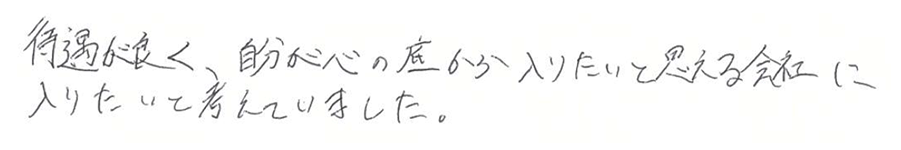 待遇が良く、自分が心の底から入りたいと思える会社に
入りたいと考えていました。